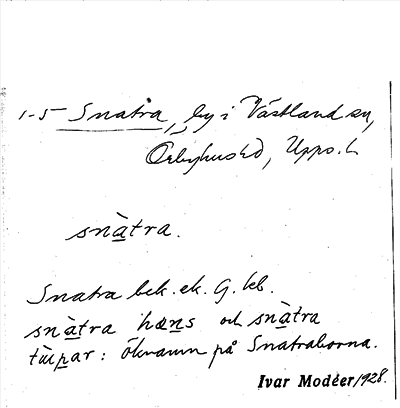 1-5 Snatra, by i Västland sn,
Örbyhus hd, Upps. l.
snàtra.
Snatra bek. ek. G. kb.
snàtra hæns och snàtra
tùpar: öknamn på Snatraborna.
Ivar Modéer 1928.